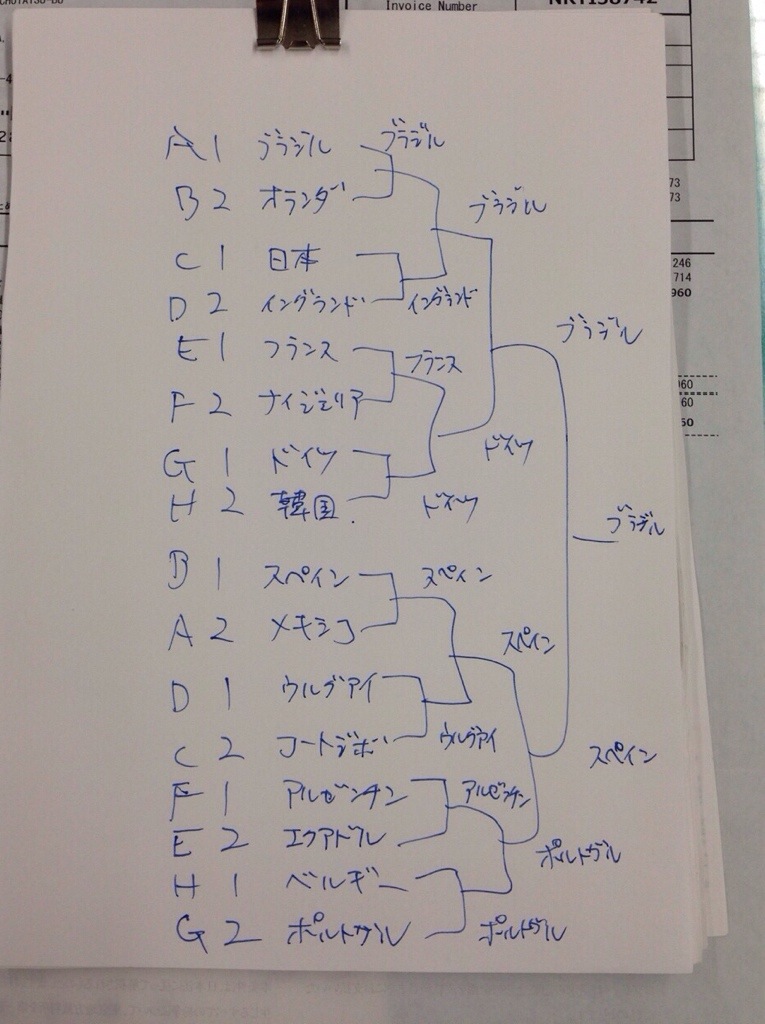 Invoice Number
A1 ブラジル ブラジル
B2 オランダ ブラジル
C1 日本
D2 イングランド イングランド
ブラジル
E1 フランス フランス
F2 ナイジェリア
G1 ドイツ ドイツ
H2 韓国 ドイツ
ブラジル
B1 スペイン スペイン
A2 メキシコ スペイン
D1 ウルグアイ
C2 コートジボ ウルグアイ
スペイン
F1 アルゼンチン アルゼンチン
E2 エクアドル ポルトガル
H1 ベルギー
G2 ポルトガル ポルトガル
73
73
246
714
960
960
60
50